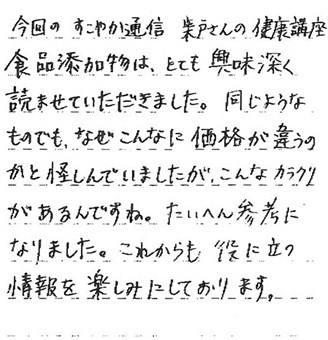 今回の すこやか通信 柴戸さんの 健康講座
食品添加物は、とても 興味深く
読ませていただきました。同じような
ものでも、なぜこんなに 価格が 違うの
かと怪しんでいましたが、こんなカラクリ
があるんですね。たいへん参考に
なりました。これからも 役に立つ
情報を楽しみにしております。